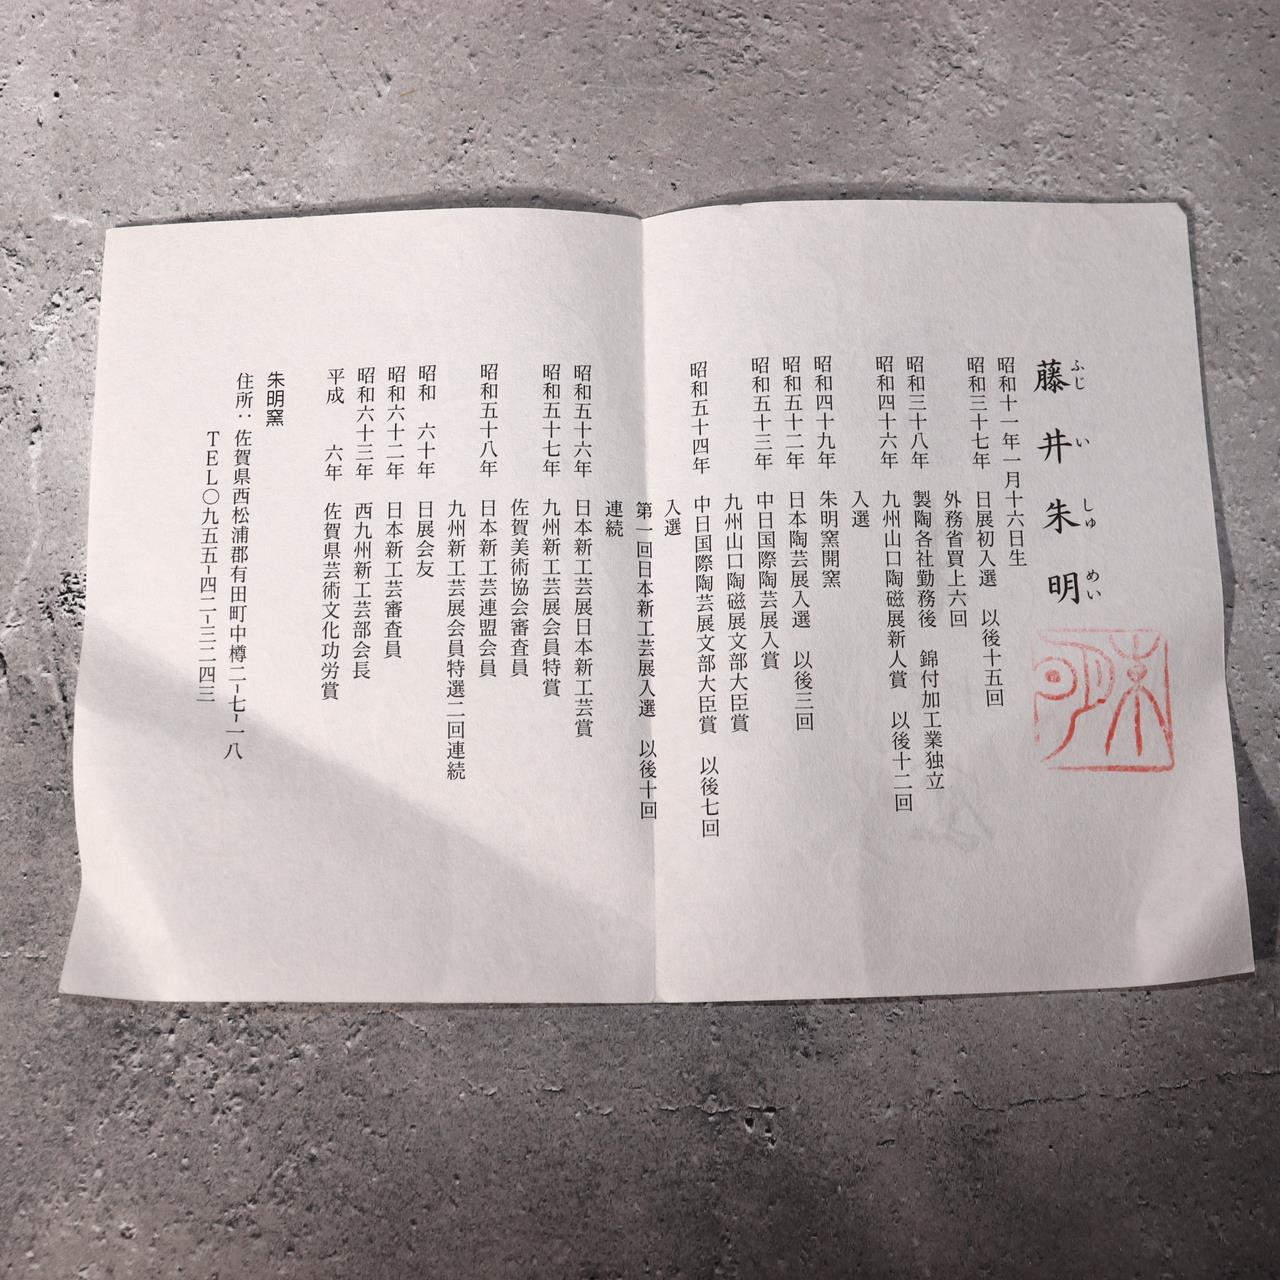 藤井朱明
ふじいしゅめい
朱明
昭和十一年一月十六日生
昭和三十七年 日展初入選 以後十五回
外務省買上六回
昭和三十八年 製陶各社勤務後 錦付加工業独立
昭和四十六年 九州山口陶磁展新人賞 以後十二回
入選
昭和四十九年 朱明窯開窯
昭和五十二年 日本陶芸展入選 以後三回
昭和五十三年 中日国際陶芸展入賞
九州山口陶磁展文部大臣賞
昭和五十四年 中日国際陶芸展文部大臣賞 以後七回
入選
第一回日本新工芸展入選 以後十回
連続
昭和五十六年 日本新工芸展日本新工芸賞
昭和五十七年 九州新工芸展会員特賞
佐賀美術協会審査員
昭和五十八年 日本新工芸連盟会員
九州新工芸展会員特選二回連続
昭和 六十年 日展会友
昭和六十二年 日本新工芸審査員
昭和六十三年 西九州新工芸部会長
平成 六年 佐賀県芸術文化功労賞
朱明窯
住所：佐賀県西松浦郡有田町中樽二-七-一八
TEL〇九五五-四二-三二四三